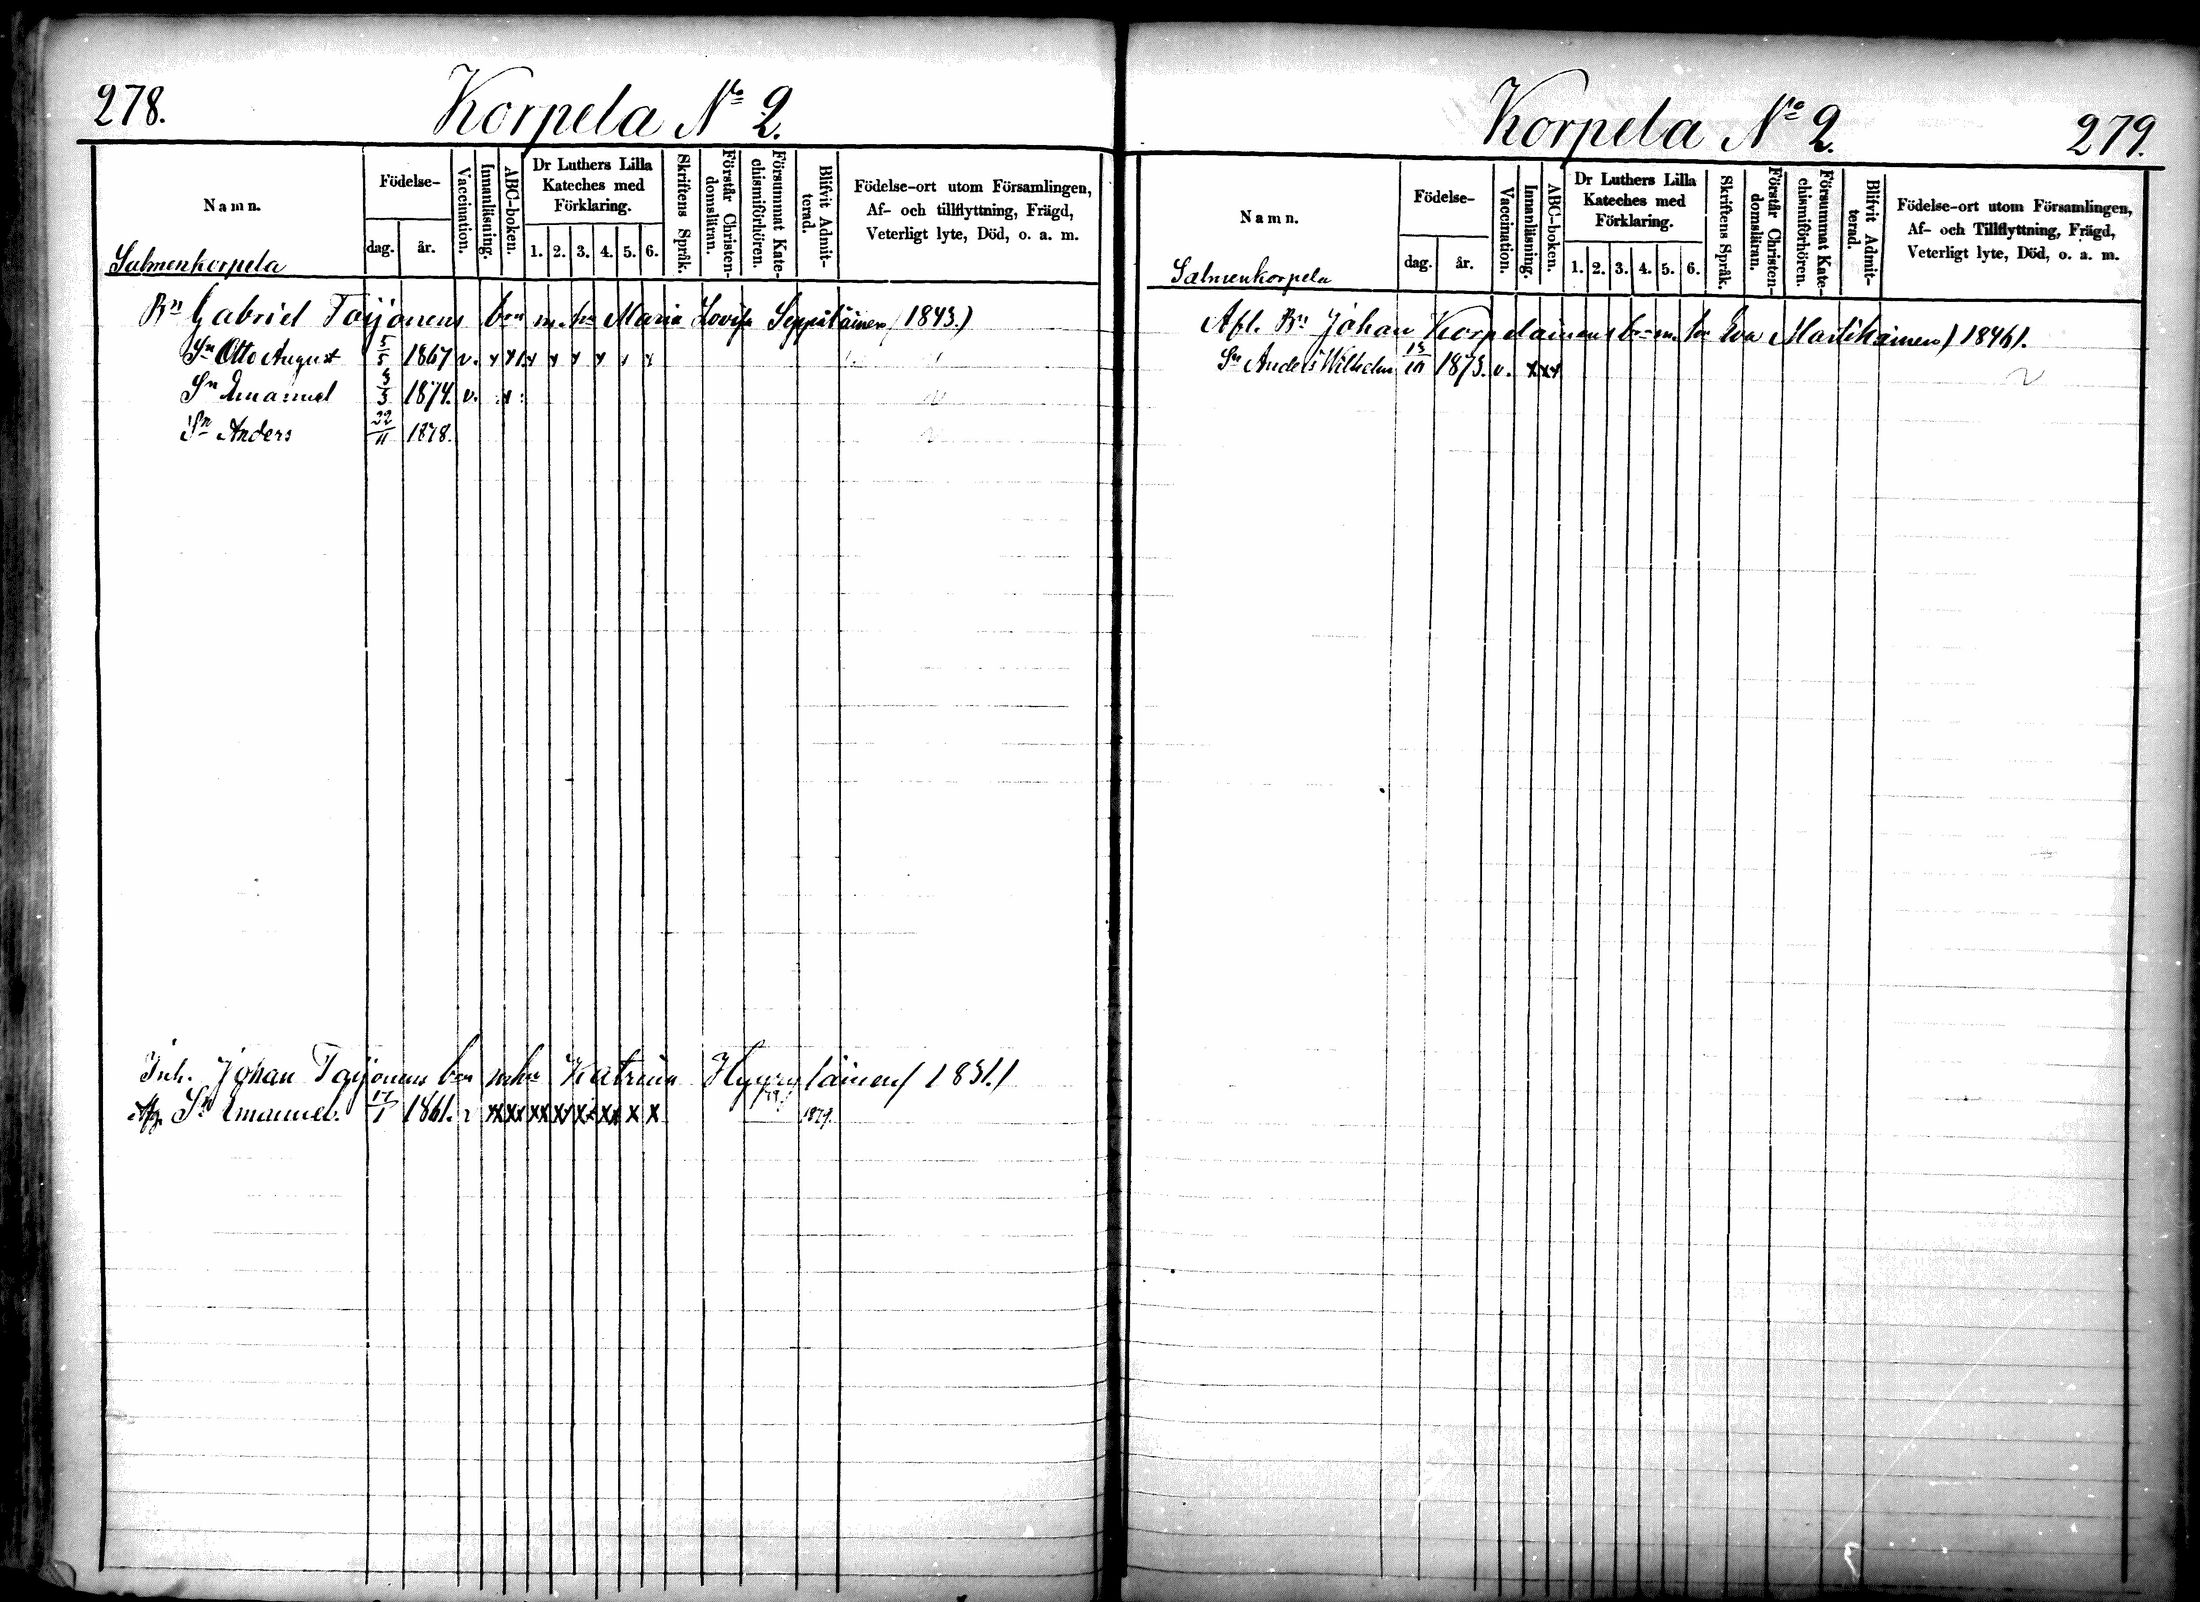 278.
Korpela No 2.
Namn.
Födelse-
dag.
år.
Vaccination.
Innanläsning.
ABC-boken.
Dr Luthers Lilla
Kateches med
Förklaring.
1. 2. 3. 4. 5. 6.
Skriftens Språk.
Förstår Christen-
domsläran.
Försummat Kate-
chismiförhören.
Blifvit Admit-
terad.
Födelse-ort utom Församlingen,
Af- och tillflyttning, Frägd,
Veterligt lyte, Död, o. a. m.
Salmenkorpela
Bn Gabriel Taijonens brn m. hu Maria Lovisa Seppäläinen (1843.)
Sn Otto August 5/5 1867 v. x x x x x x x x
Sn Emanuel 3/3 1874. v. x
Sn Anders 22/11 1878.
Inh. Johan Taijonens brn mhu Katrina 1831.)
Sn Emanuel. 17/1 1861. xx xx xx xx xx xx x x 1879.
Korpela No 2.
279.
Namn.
Födelse-
dag.
år.
Vaccination.
Innanläsning.
ABC-boken.
Dr Luthers Lilla
Kateches med
Förklaring.
1. 2. 3. 4. 5. 6.
Skriftens Språk.
Förstår Christen-
domsläran.
Försummat Kate-
chismiförhören.
Blifvit Admit-
terad.
Födelse-ort utom Församlingen,
Af- och Tillflyttning, Frägd,
Veterligt lyte, Död, o. a. m.
Salmenkorpela
Afl. Bn Johan Korpelainens brn m. hu Eva Martikainen) 1846).
Sn Anders Wilhelm 1873. v. x x x